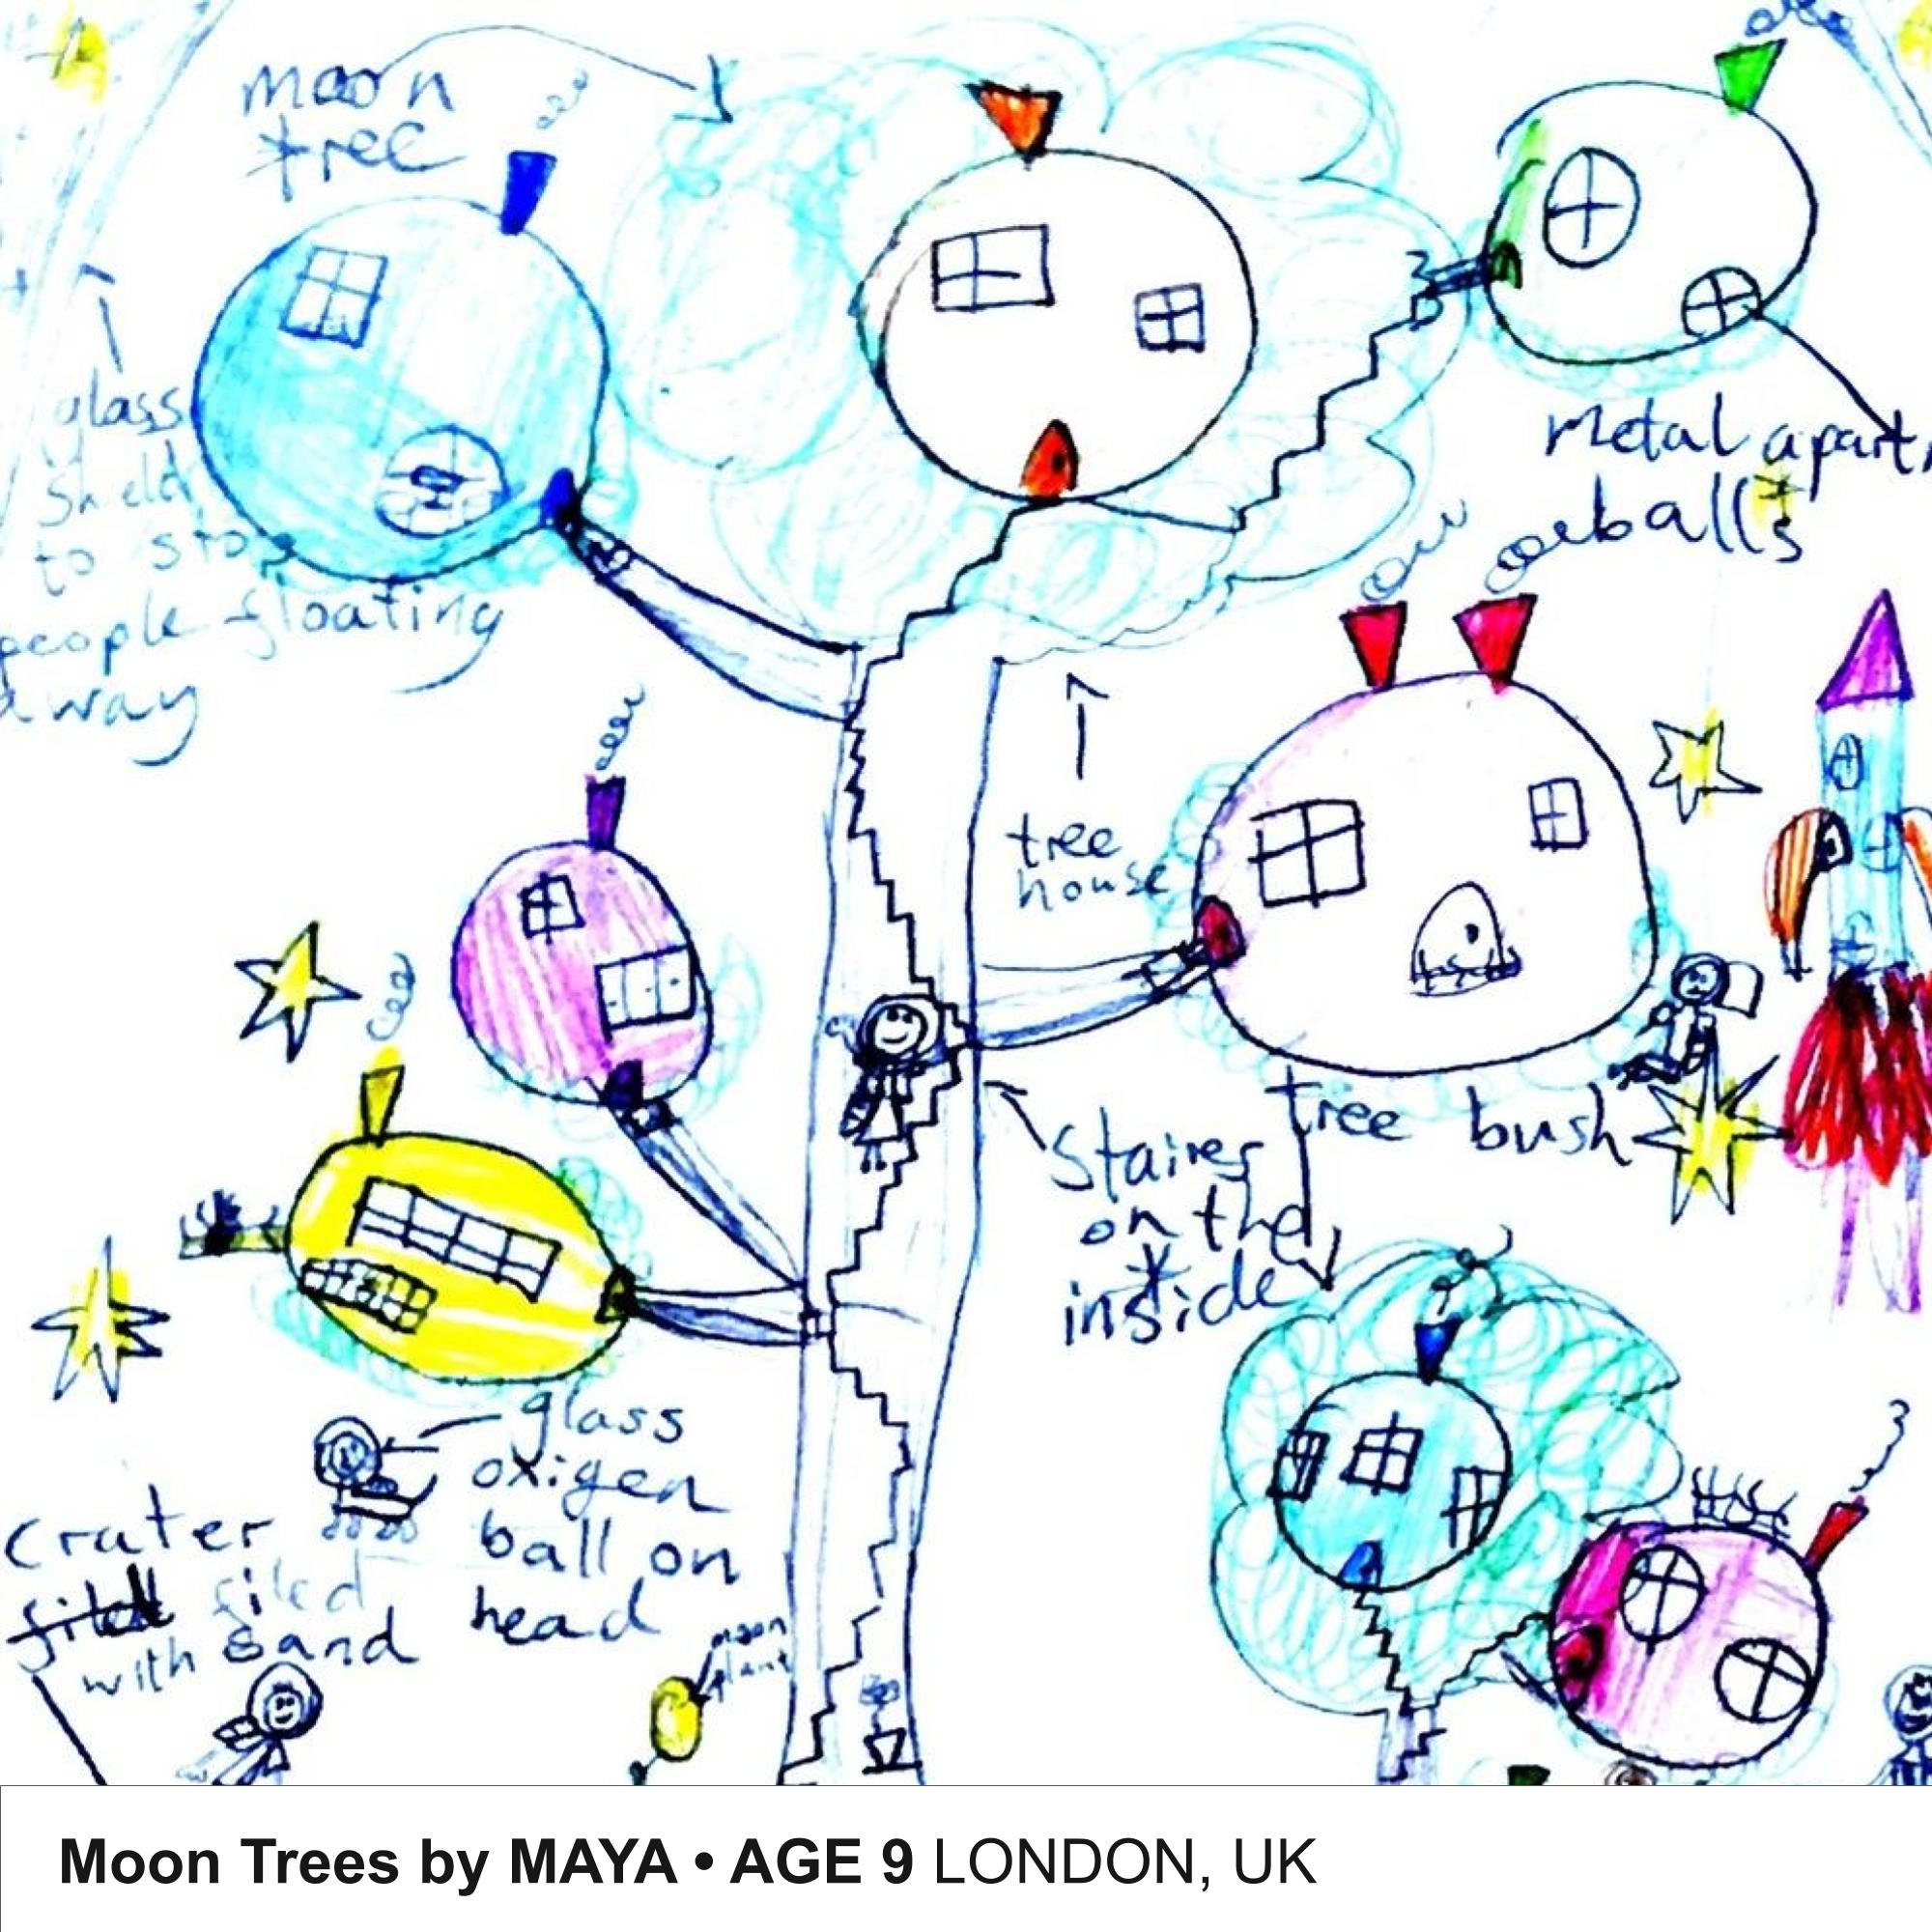 moon
tree
glass
shield
to stop
people floating
away
Metal apart
balls
tree
house
tree bush
Staires
on the
inside
glass
oxigen
ball on
head
crater
filed
with sand
moon
plant
Moon Trees by MAYA • AGE 9 LONDON, UK